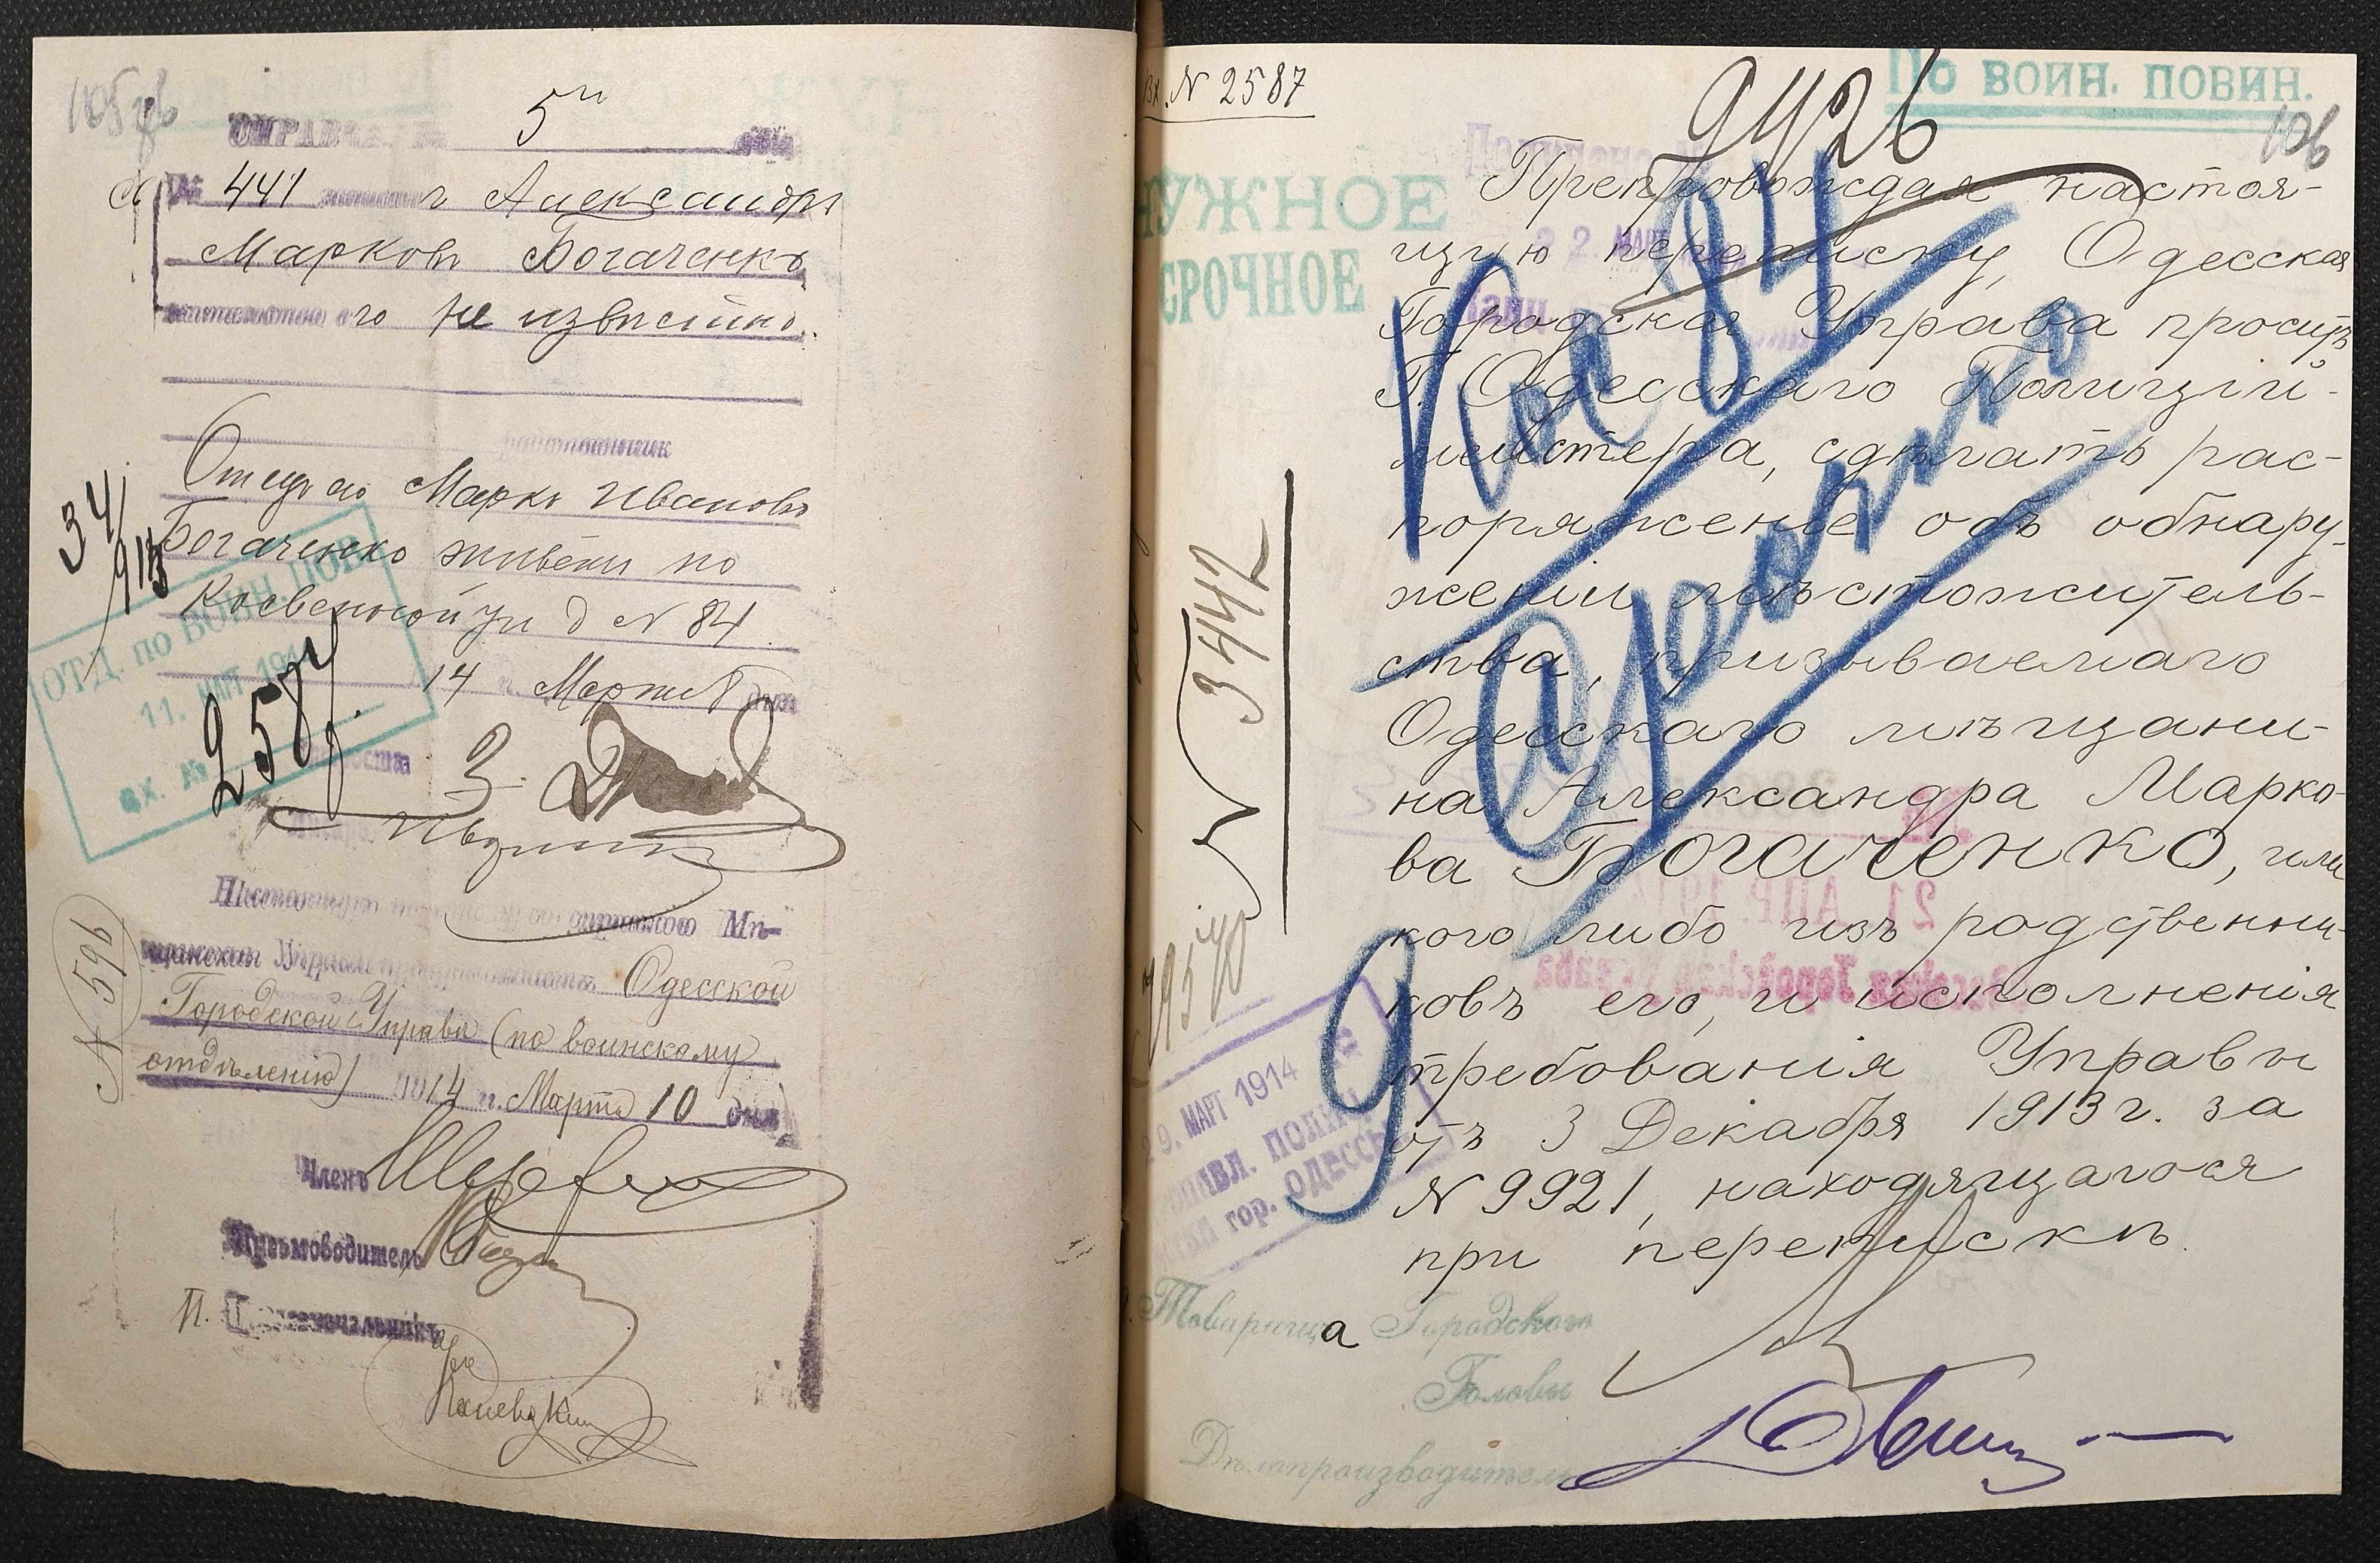 105 об
СПРАВКА. 5й
№ 441 Александръ
Марковъ Богаченко
жительство его не известно.
Отецъ его Маркъ Ивановъ
Богаченко живётъ по
Косвенной ул д № 84
14 Марта дня
34/913
ОТД. по ВОИН. ПОВ.
11. МАРТ 191
вх. №
2587.
старосты З.
Настоящую справкою Мѣ-
щанская Управа Одесской
Городской Управѣ (по воинскому
отдѣленію) 1914 г. Марта 10 дня
№ 596
Членъ
Письмоводитель
П. Каневскій
Вх. № 2587
9426
По воин. повин.
106
НУЖНОЕ
СРОЧНОЕ
22. МАР
Препровождая настоя-
щую переписку, Одесская
Городская Управа проситъ
Г. Одесскаго Полицій-
мейстера, сдѣлать рас-
поряженіе объ обнару-
женіи мѣстожитель-
ства, призываемаго
Одесскаго мѣщани-
на Александра Марко-
ва Богаченко, или
кого либо изъ родственни-
ковъ его, и исполненія
требованія Управы
отъ 3 Декабря 1913 г. за
№ 9921, находящагося
при перепискѣ
На 84
Срочно
9
№ 3442
29. МАРТ 1914
УПРАВЛ. ПОЛИЦ
гор. ОДЕССЫ
21. АПР. 191
Одесская Городская Управа
Товарища Городского
Головы
Дѣлопроизводитель